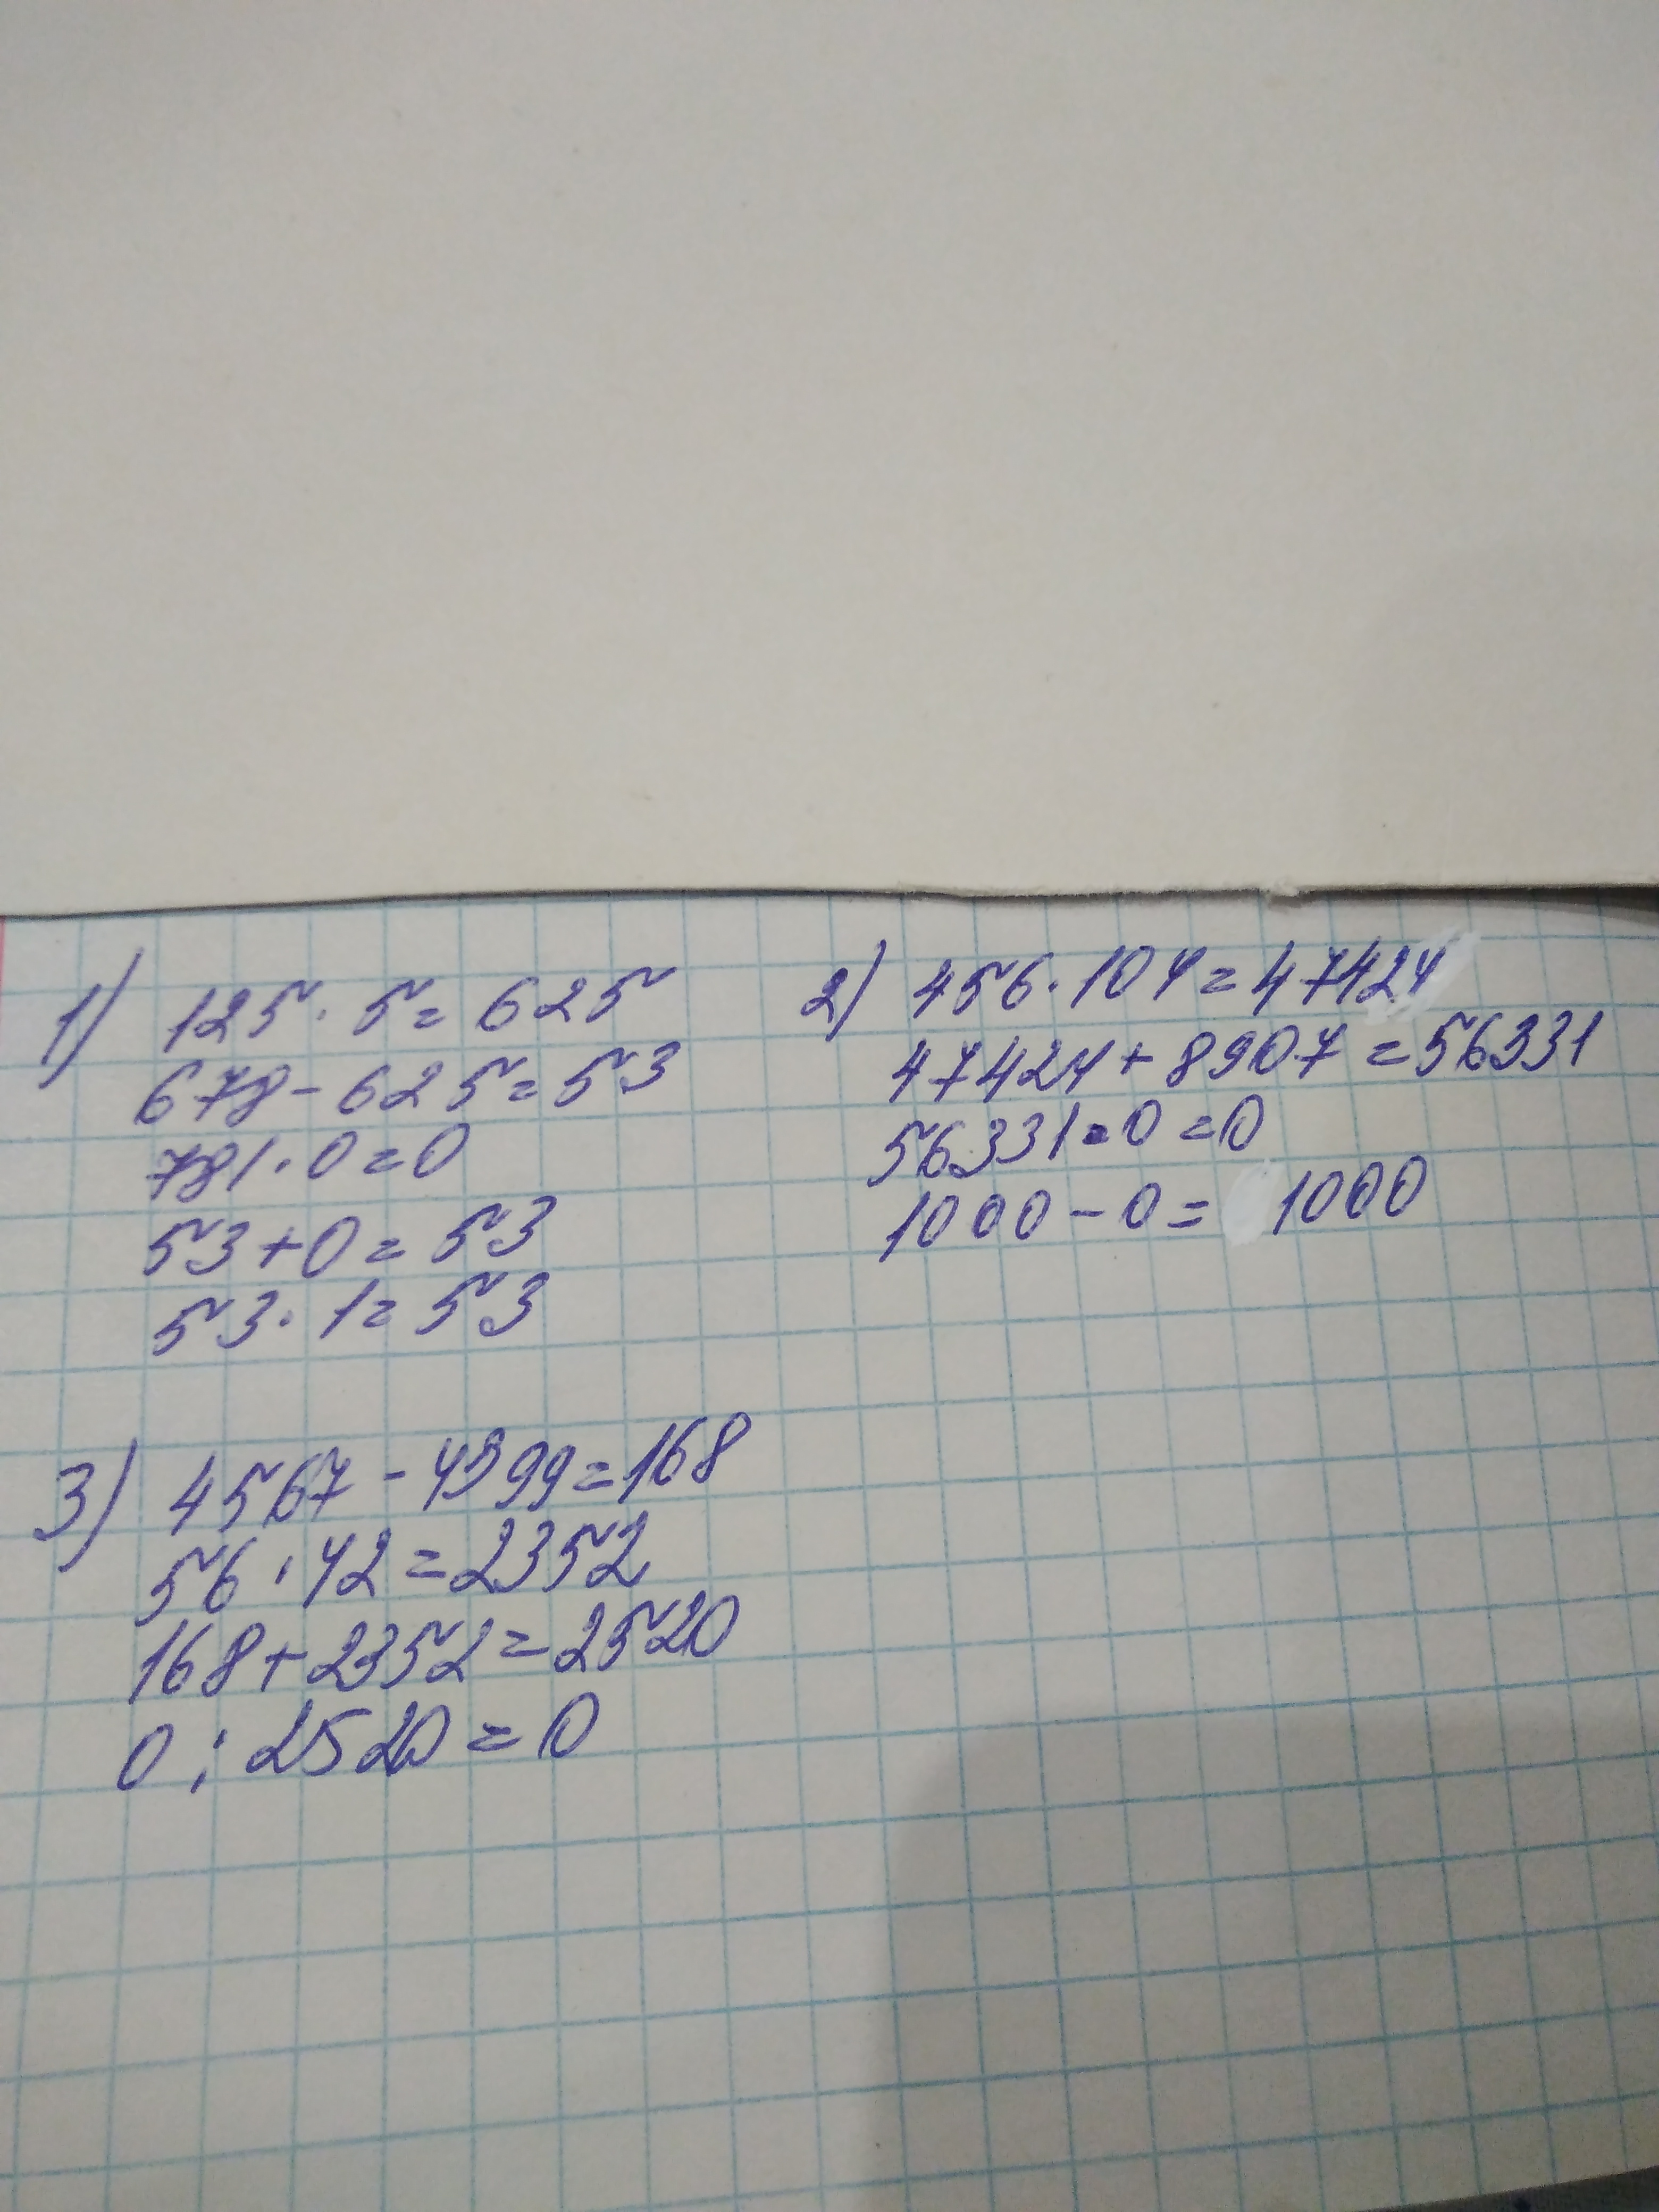 1) 125 · 5 = 625
678 - 625 = 53
781 · 0 = 0
53 + 0 = 53
53 · 1 = 53
2) 456 · 104 = 47424
47424 + 8907 = 56331
56331 · 0 = 0
1000 - 0 = 1000
3) 4567 - 4399 = 168
56 · 42 = 2352
168 + 2352 = 2520
0 : 2520 = 0